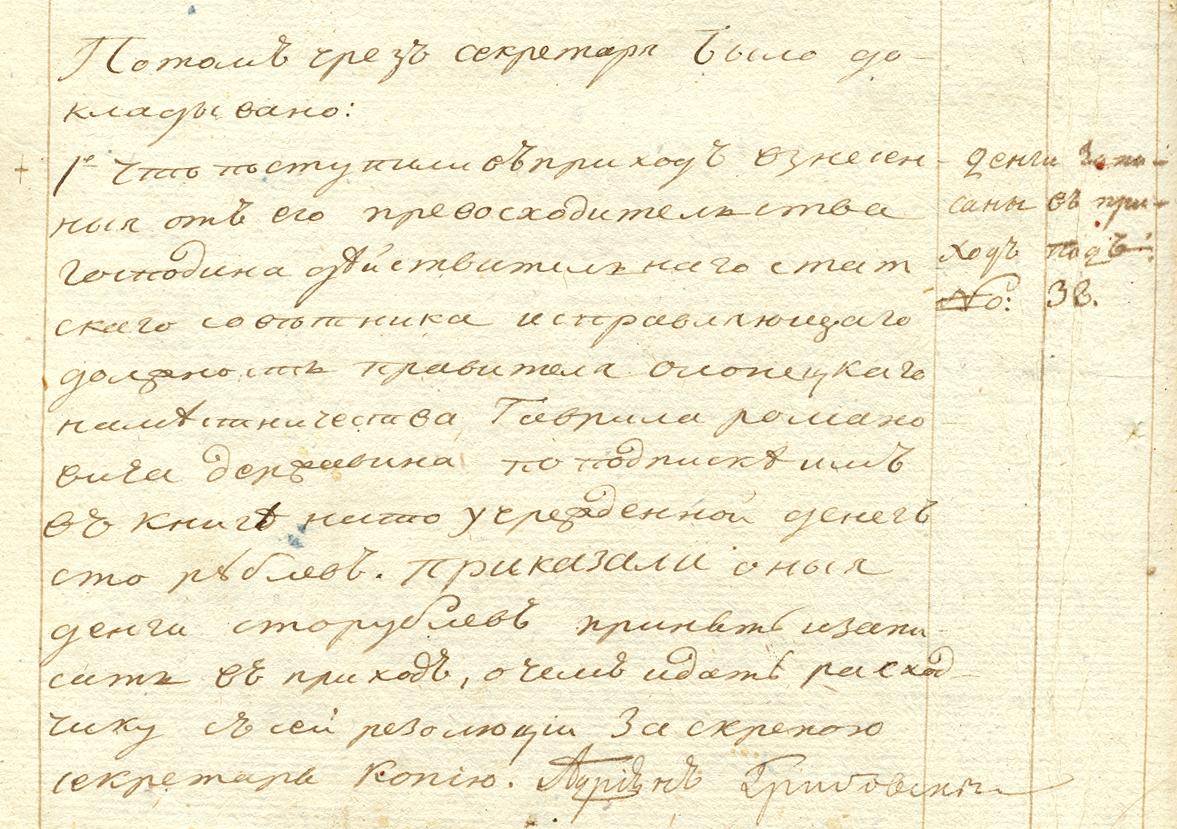 Потомъ чрезъ секретаря было до-
кладывано:
1е Что поступили въ приходъ взнесен-
ныя отъ его превосходительства
господина дѣйствительнаго стат
скаго совѣтника исправляющаго
должность правителя олонецкаго
намѣстничества Гаврила романо-
вича державина по подпискѣ имъ
въ книгѣ на то учрежденной денегъ
сто рублевъ. приказали оныя
денги сто рублевъ принять и запи-
сать въ приходъ, о чемъ и дать расход-
чику съ сей резолюціи за скрепою
секретаря копію. Адріянъ Грибовскій
денги запи-
саны въ при-
ходъ подъ:
No: 38.